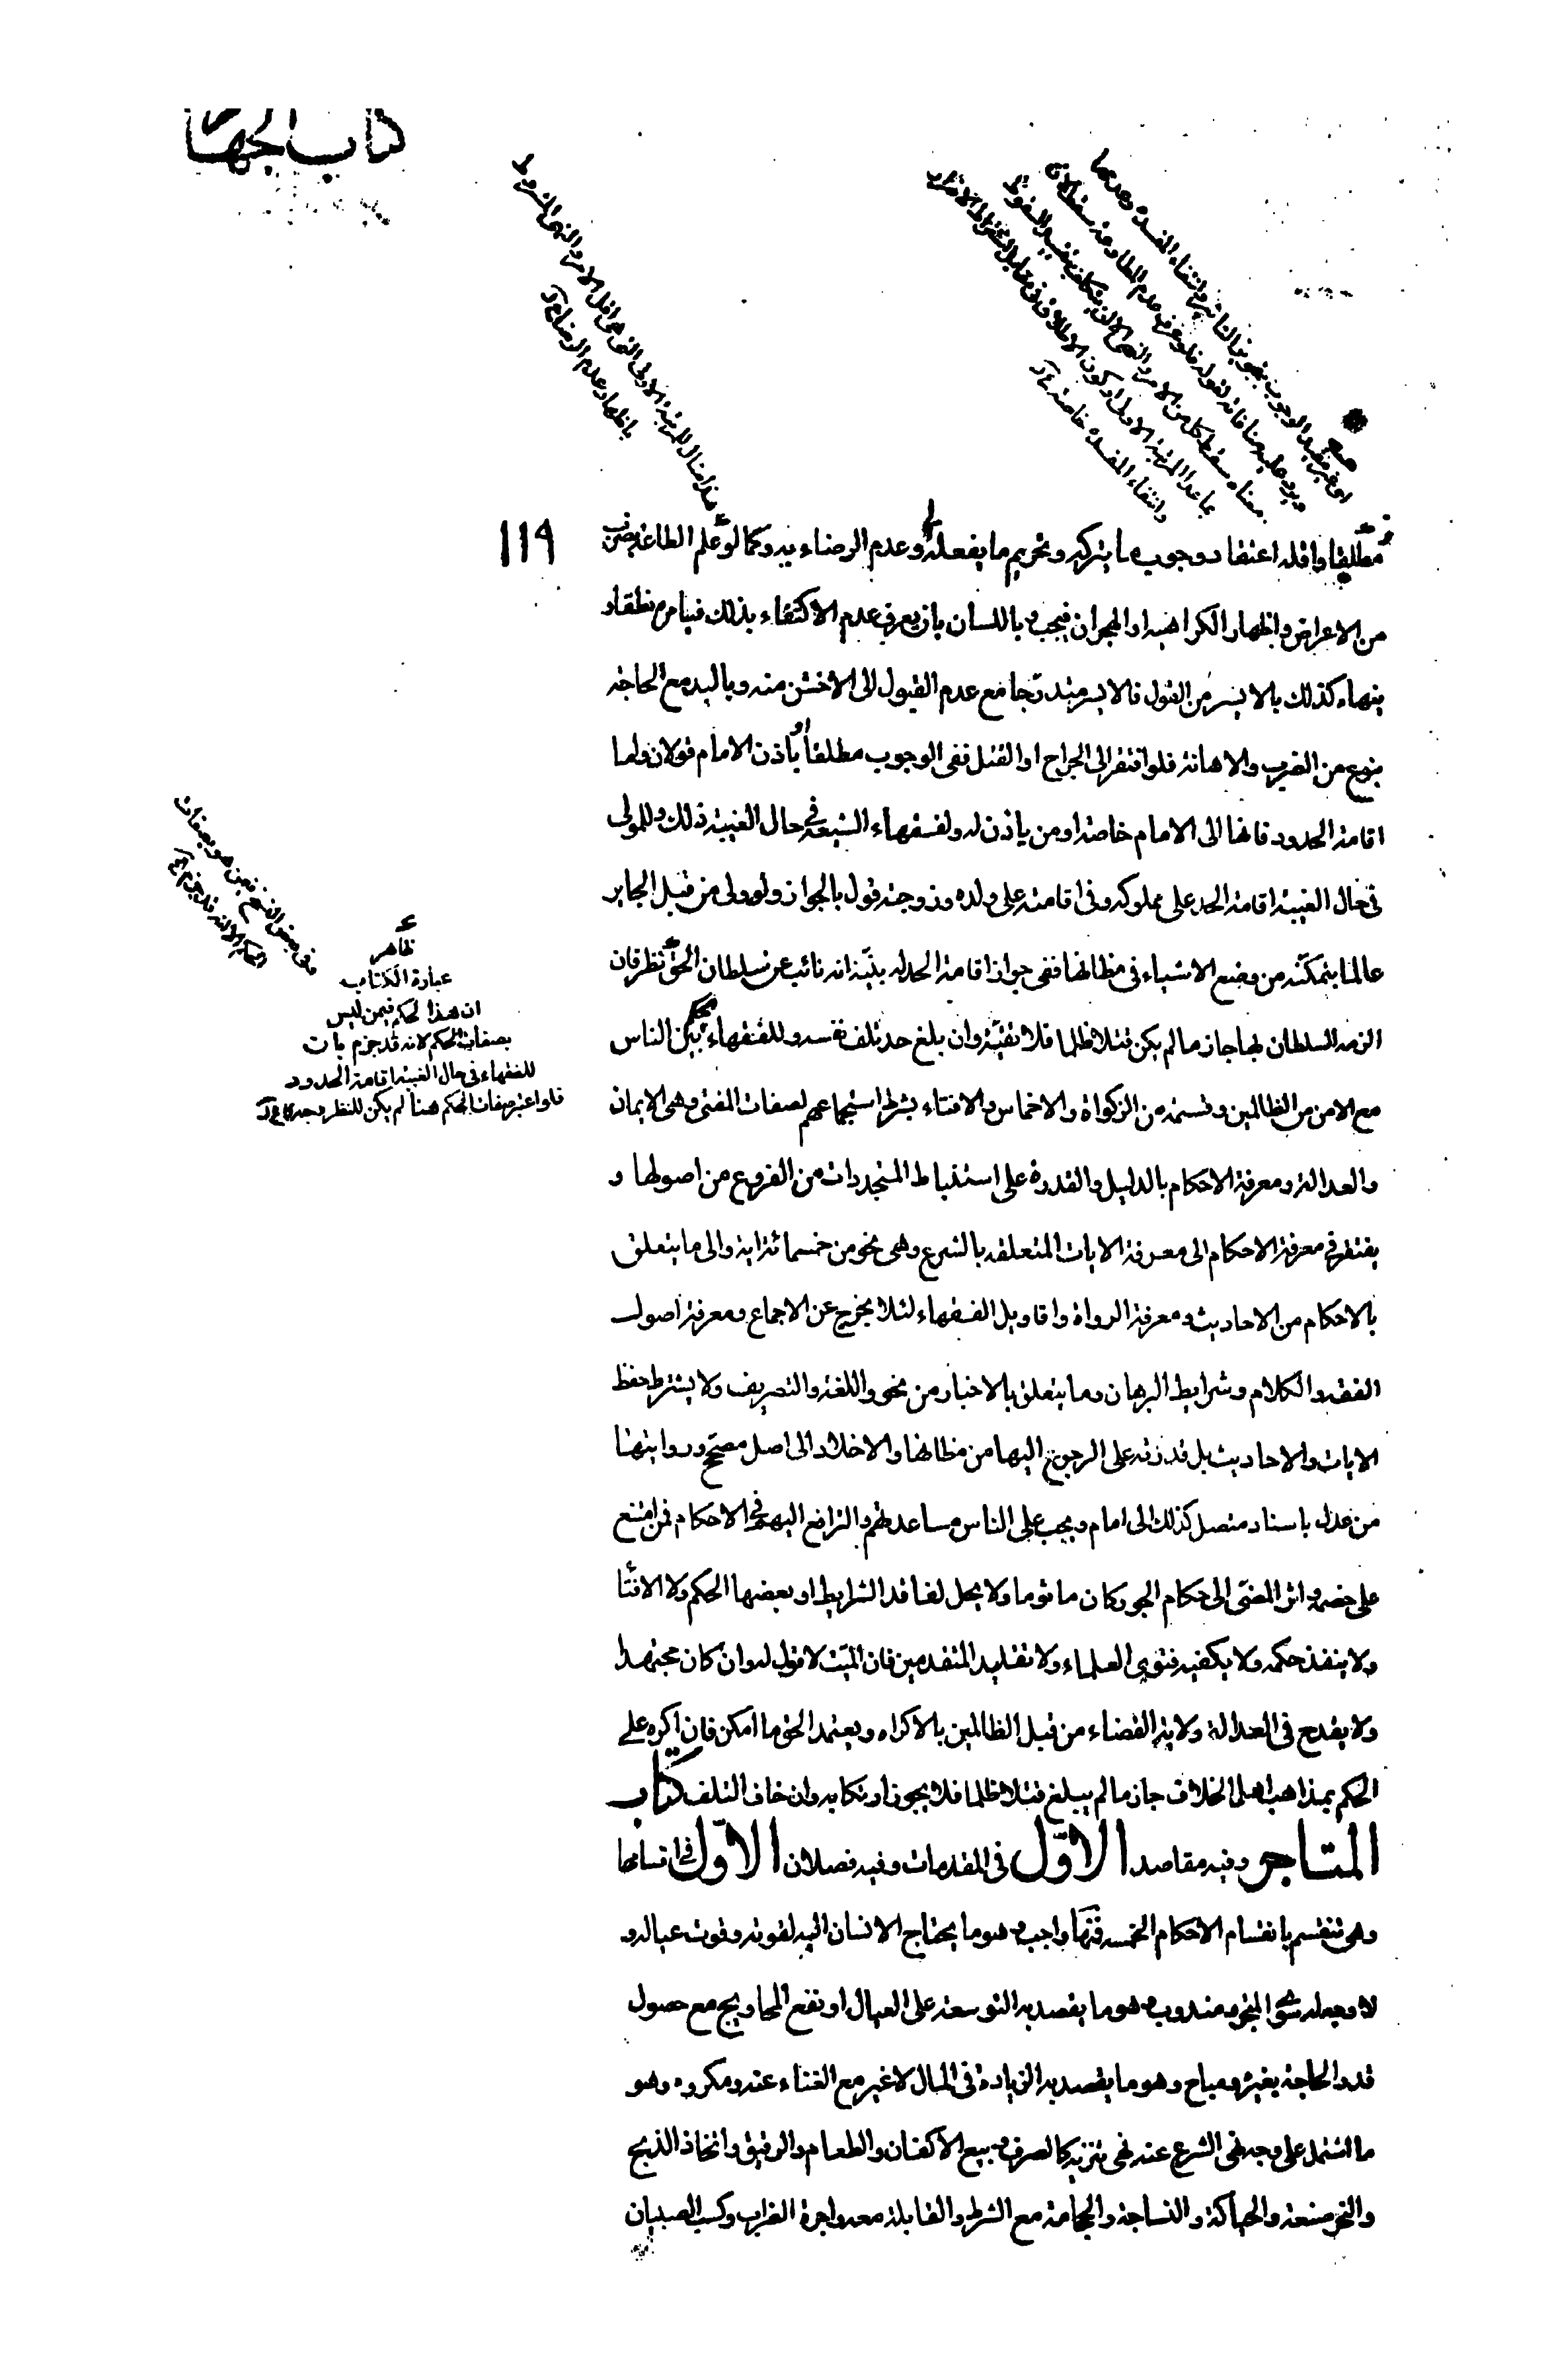 كتاب الجهاد
١١٩
مطلقا واقله اعتقاد وجوب ما يتركه وتحريم ما يفعله وعدم الرضاء به وكما لو علم الطاعة بضرب
من الاعراض واظهار الكراهية او الهجران فيجب وباللسان بان يعرف عدم الاكتفاء بذلك فيامره نطقا و
ينهاه كذلك بالايسر من القول فالايسر متدرجا مع عدم القبول الى الاخشن منه وباليد مع الحاجة
بنوع من الضرب والاهانة فلو افتقر الى الجراح او القتل ففى الوجوب مطلقا او باذن الامام قولان واما
اقامة الحدود فانها الى الامام خاصة او من ياذن له ولفقهاء الشيعة فى حال الغيبة ذلك وللمولى
فى حال الغيبة اقامة الحد على مملوكه وفى اقامته على ولده وزوجته قول بالجواز ولو ولى من قبل الجاير
عالما بتمكنه من وضع الاشياء فى مظانها ففى جواز اقامة الحد له بنية انه نائب عن سلطان الحق نظر فان
الزمه السلطان بها جاز ما لم يكن قتلا ظلما فلا تقية وان بلغ حد تلف نفسه وللفقهاء الحكم بين الناس
مع الامن من الظالمين وقسمة من الزكواة والاخماس والافتاء بشرط استجماعهم لصفات المفتى وهى الايمان
والعدالة ومعرفة الاحكام بالدليل والقدرة على استنباط المتجددات من الفروع من اصولها و
يفتقر فى معرفة الاحكام الى معرفة الايات المتعلقة بالشرع وهى نحو من خمسمائة اية والى ما يتعلق
بالاحكام من الاحاديث ومعرفة الرواة واقاويل الفقهاء لئلا يخرج عن الاجماع ومعرفة اصول
الفقه والكلام وشرايط البرهان وما يتعلق بالاخبار من نحو واللغة والتصريف ولا يشترط حفظ
الايات والاحاديث بل قدرته على الرجوع اليها من مظانها والاخلاد الى اصل مصحح ورواينها
من عدل باسناد متصل كذلك الى امام ويجب على الناس مساعدتهم والترافع اليهم فى الاحكام فمن امتنع
على خصمه واثر المضى الى حكام الجور كان ماثوما ولا يحل لفاقد الشرايط او بعضها الحكم ولا الافتا
ولا ينفذ حكمه ولا يكفيه فتوى العلماء ولا تقليد المتقدمين فان الميت لا قول له وان كان مجتهدا
ولا يقدح فى العدالة ولاية القضاء من قبل الظالمين بالاكراه ويعتمد الحق ما امكن فان اكره على
الحكم بمذاهب اهل الخلاف جاز ما لم يبلغ قتلا ظلما فلا يجوز ارتكابه وان خاف التلف كتاب
المتاجر وفيه مقاصد الاول فى المقدمات وفيه فصلان الاول فى اقسامها
وهى تنقسم بانقسام الاحكام الخمسة فمنها واجب وهو ما يحتاج الانسان اليه لقوته وقوت عياله و
لا وجه له سوى المتجر ومندوب وهو ما يقصد به التوسعة على العيال او نفع المحاويج مع حصول
قدر الحاجة بغيره ومباح وهو ما يقصد به الزيادة فى المال لا غير مع الغناء عنه ومكروه وهو
ما اشتمل على وجه نهى الشرع عنه نهى تنزيه كالصرف وبيع الاكفان والطعام والرقيق واتخاذ الذبح
والنحر صنعة والحياكة والنساجة والحجامة مع الشرط والقابلة معه واجرة الضراب وكسب الصبيان
هذا مثال للمرتبة الاولى التى هى اقل الامر والنهى المشروط
باظهار عدم الرضا
ظاهر
عبارة الكتاب
ان هذا الحكم فيمن ليس
بصفات الحكم لانه قد جزم بان
للفقهاء فى حال الغيبة اقامة الحدود
فلو اعتبر صفات الحكم هنا لم يكن للنظر وجه